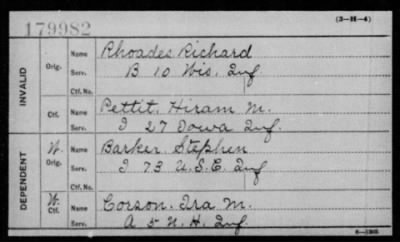 179982
(3-H-4)
INVALID
Orig.
Name Rhoades Richard
Serv. B 10 Wis. Inf
Ctf. No.
Ctf.
Name Pettit, Hiram M.
Serv. I 27 Iowa Inf.
DEPENDENT
W. Orig.
Name Barker, Stephen
Serv. I 73 U.S.C. Inf
Ctf. No.
W. Ctf.
Name Corson, Ira M.
Serv. A 5 N.H. Inf.